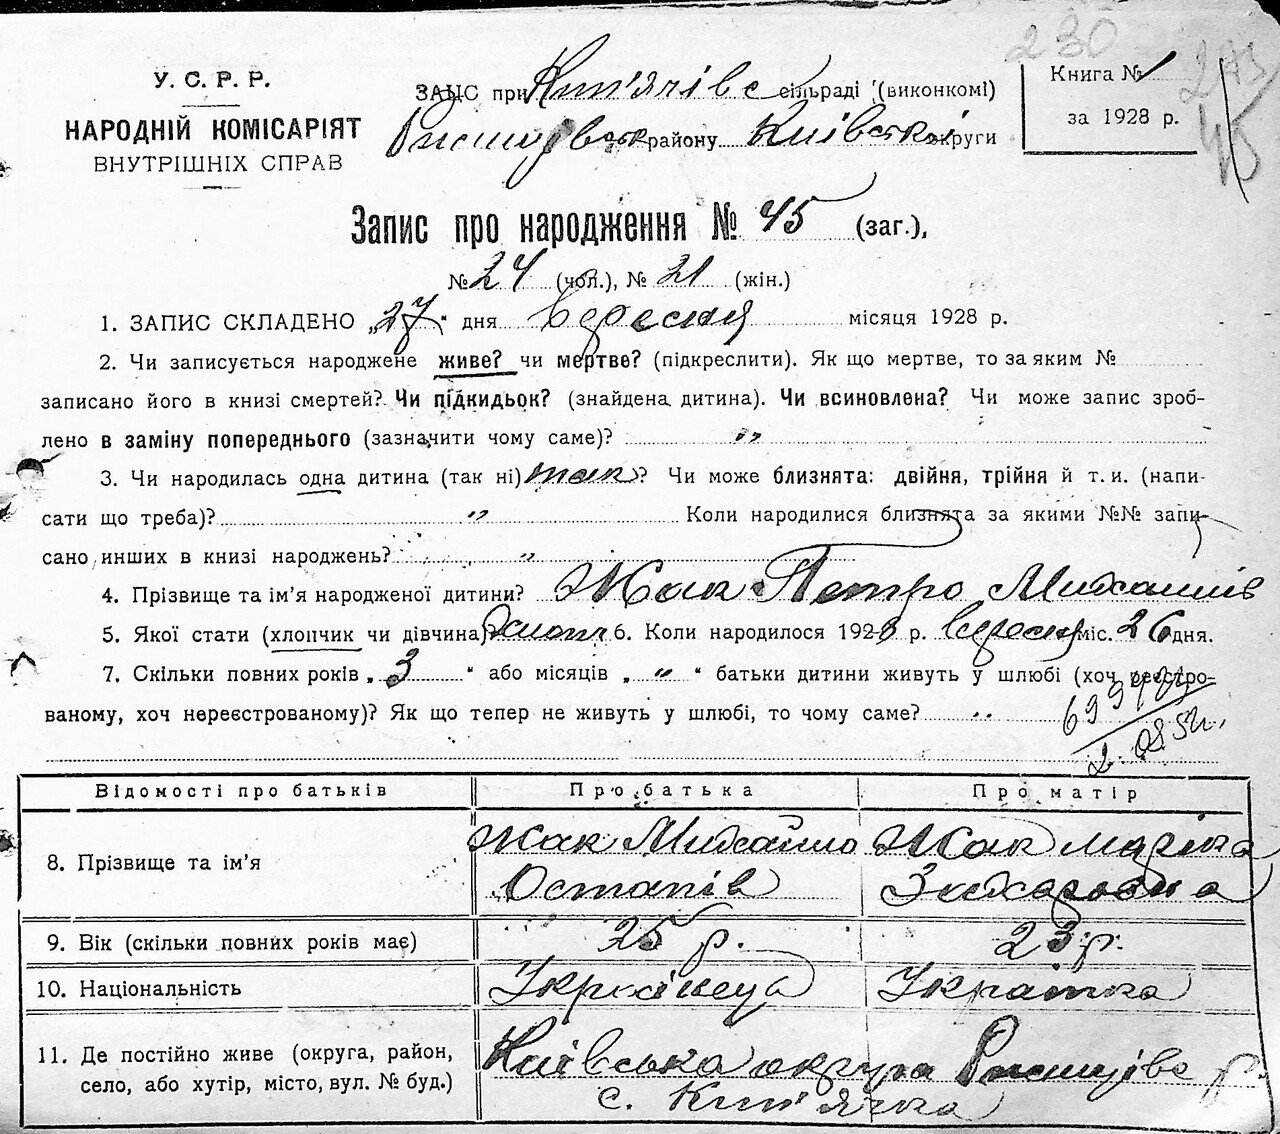 230
У. С. Р. Р.
НАРОДНІЙ КОМІСАРІЯТ
ВНУТРІШНІХ СПРАВ
ЗАГС при Кип'ячівс сільраді (виконкомі)
району Київської округи
Книга № 1
за 1928 р.
45
Запис про народження № 45 (заг.),
№ 24 (чол.), № 21 (жін.)
1. ЗАПИС СКЛАДЕНО „27“ дня вересня місяця 1928 р.
2. Чи записується народжене живе? чи мертве? (підкреслити). Як що мертве, то за яким №
записано його в книзі смертей? Чи підкидьок? (знайдена дитина). Чи всиновлена? Чи може запис зроб-
лено в заміну попереднього (зазначити чому саме)? „
3. Чи народилась одна дитина (так ні) так? Чи може близнята: двійня, трійня й т. и. (напи-
сати що треба)? „ Коли народилися близнята за якими №№ запи-
сано инших в книзі народжень? „
4. Прізвище та ім'я народженої дитини? Жак Петро Михайлів
5. Якої стати (хлопчик чи дівчина) хлопч 6. Коли народилося 1928 р. вересня міс. 26 дня.
7. Скільки повних років „ 3 “ або місяців „ „ “ батьки дитини живуть у шлюбі (хоч реєстро-
ваному, хоч нереєстрованому)? Як що тепер не живуть у шлюбі, то чому саме?
Відомості про батьків Про батька Про матір
8. Прізвище та ім'я Жак Михайло Остапів Жак Марина Захаровна
9. Вік (скільки повних років має) 25 р. 23 р.
10. Національність Українець Українка
11. Де постійно живе (округа, район, село, або хутір, місто, вул. № буд.) Київська округа р. с. Кип'ячка